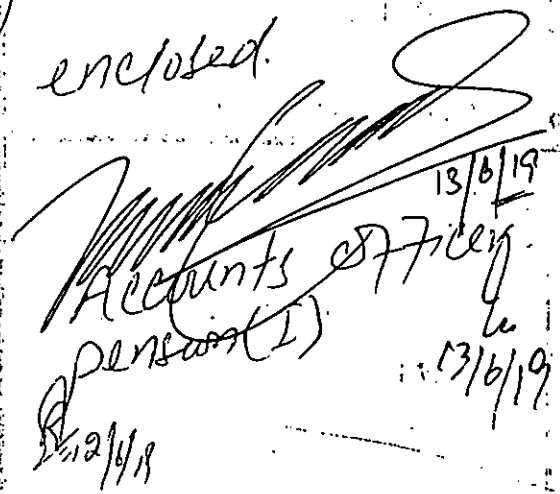 enclosed.
13/6/19
Accounts Officer
pension(I)
13/6/19
12/6/19